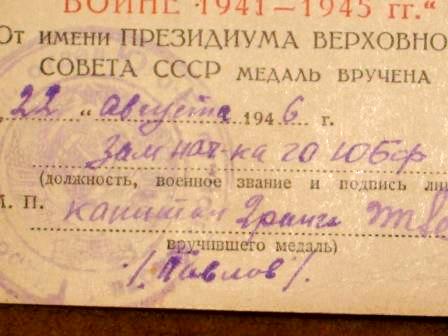 ВОЙНЕ 1941—1945 гг."
От имени ПРЕЗИДИУМА ВЕРХОВНО
СОВЕТА СССР МЕДАЛЬ ВРУЧЕНА
„22" августа 1946 г.
Зам нач-ка ГО ЮБФ
(должность, военное звание и подпись ли
М. П. капитан 2 ранга
вручившего медаль)
/Павлов/.